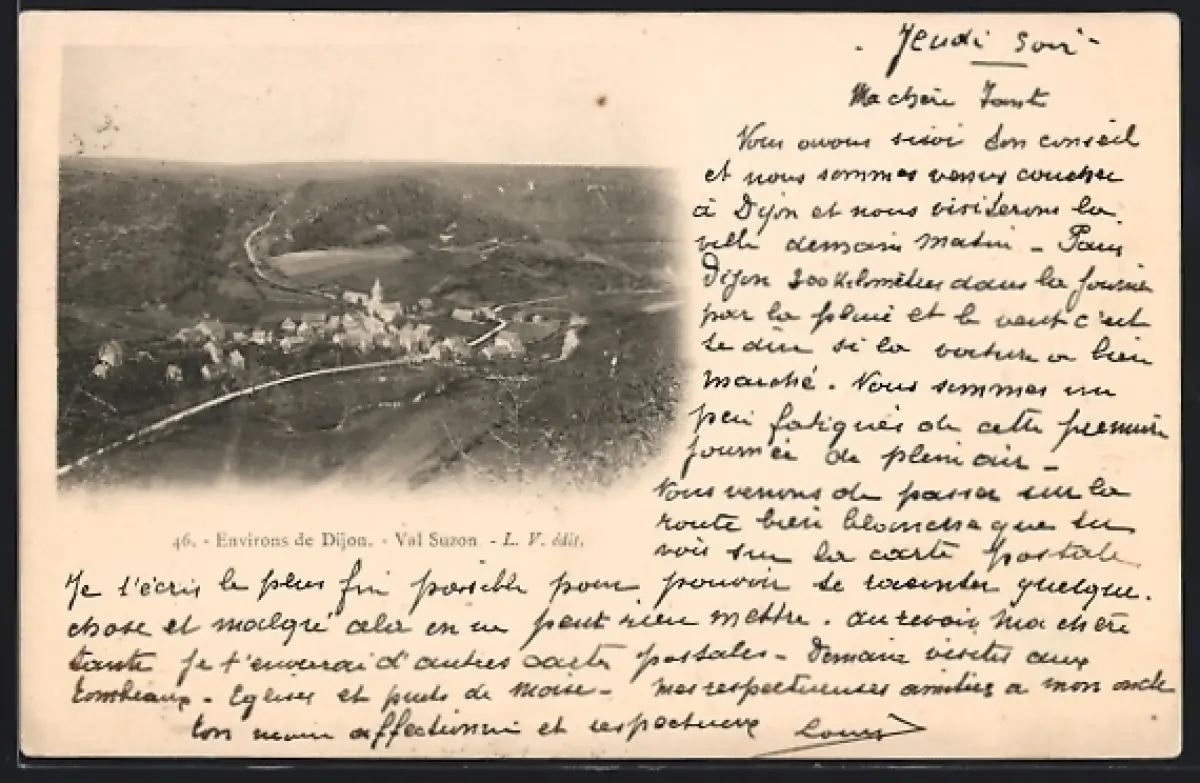 Jeudi soir
Ma chère Tante
Nous avons suivi ton conseil
et nous sommes venus coucher
à Dijon et nous visiterons la
ville demain matin - Paris
Dijon 300 Kilomètres dans la journée
par la pluie et le vent c'est
te dire si la voiture a bien
marché. Nous sommes un
peu fatigués de cette première
journée de plein air -
Nous venons de passer sur la
route bien blanche que tu
vois sur la carte postale
46. - Environs de Dijon. - Val Suzon - L. V. édit.
Je t'écris le plus fin possible pour pouvoir te raconter quelque
chose et malgré cela on ne peut rien mettre. au revoir Ma chère
tante je t'enverrai d'autres cartes postales - Demain visites aux
tombeaux - Eglises et puits de Moïse - Mes respectueuses amitiés a mon oncle
ton neveu affectionné et respectueux Louis